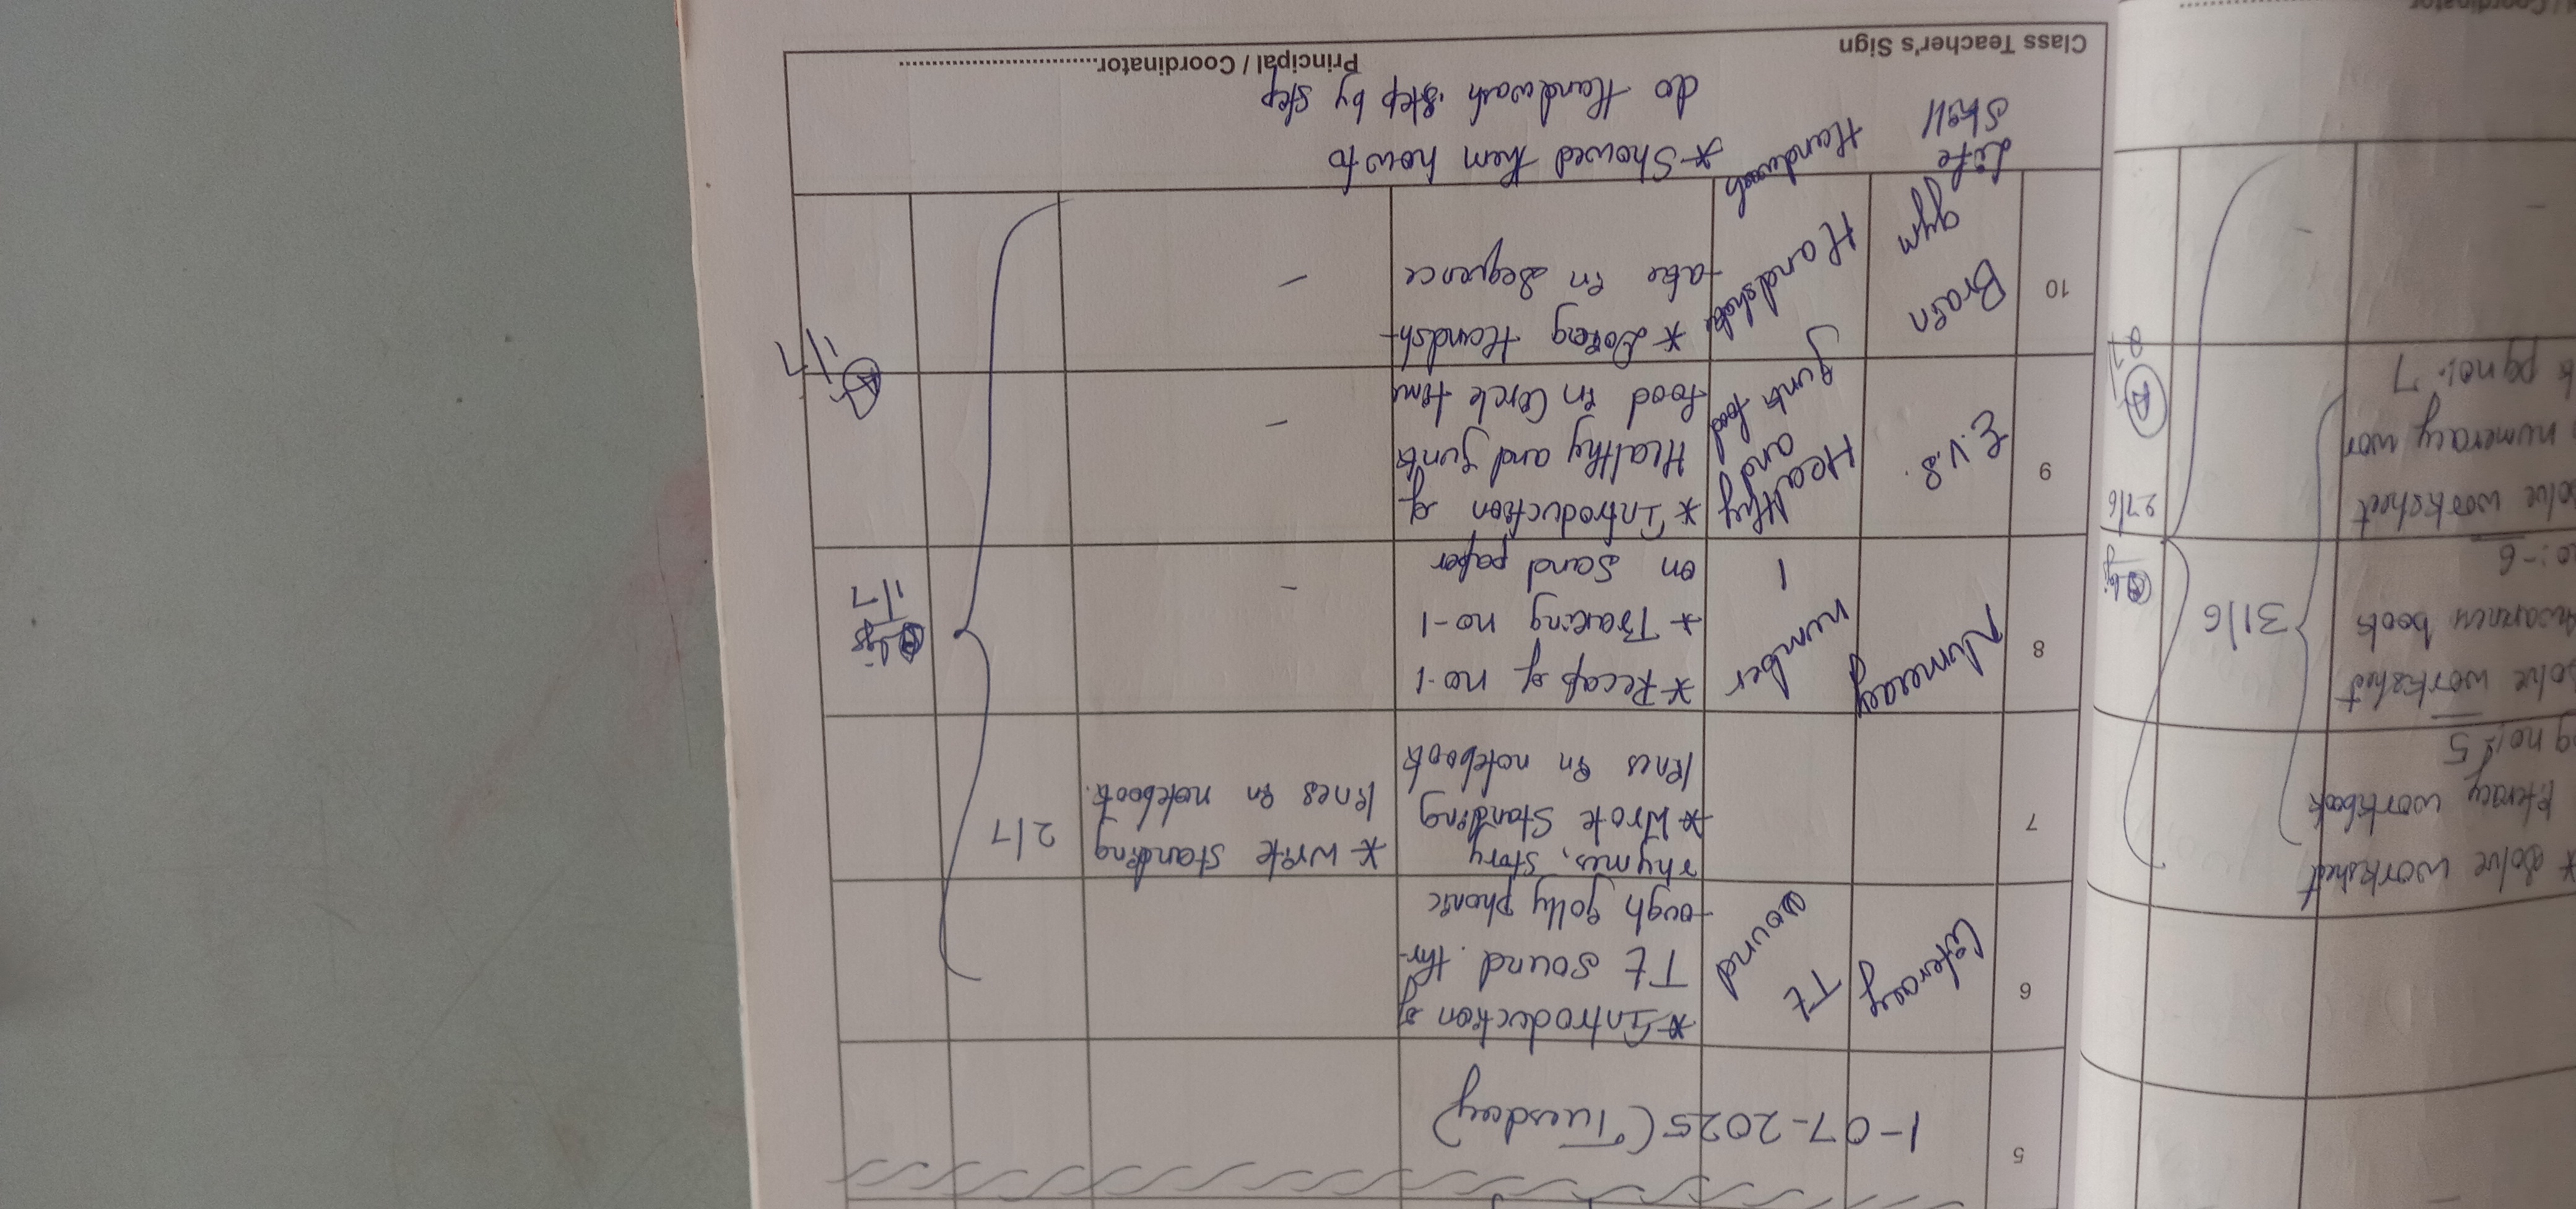 5
1-07-2025 (Tuesday)
6
Literacy
Tt
sound
*Introduction of
Tt sound thr-
ough jolly phonic
rhymes, story
7
*Wrote Standing
lines in notebook
* Write standing
lines in notebook.
2/7
8
Numeracy
number
1
*Recap of no-1
* Tracing no-1
on Sand paper
-
1/7
9
E.V.S.
Healthy
and
Junk food
*Introduction of
Healthy and junk
food in Circle time
-
1/7
10
Brain
gym
Handshake
*Doing Handsh-
ake in Sequence
-
Life
Skill
Handwash
*Showed them how to
do Handwash step by step
Class Teacher's Sign
Principal / Coordinator
* Solve worksheet
literacy workbook
no: 5
Solve worksheet
book
no:-6
31/6
worksheet
numeracy wor
pg no:- 7
27/6